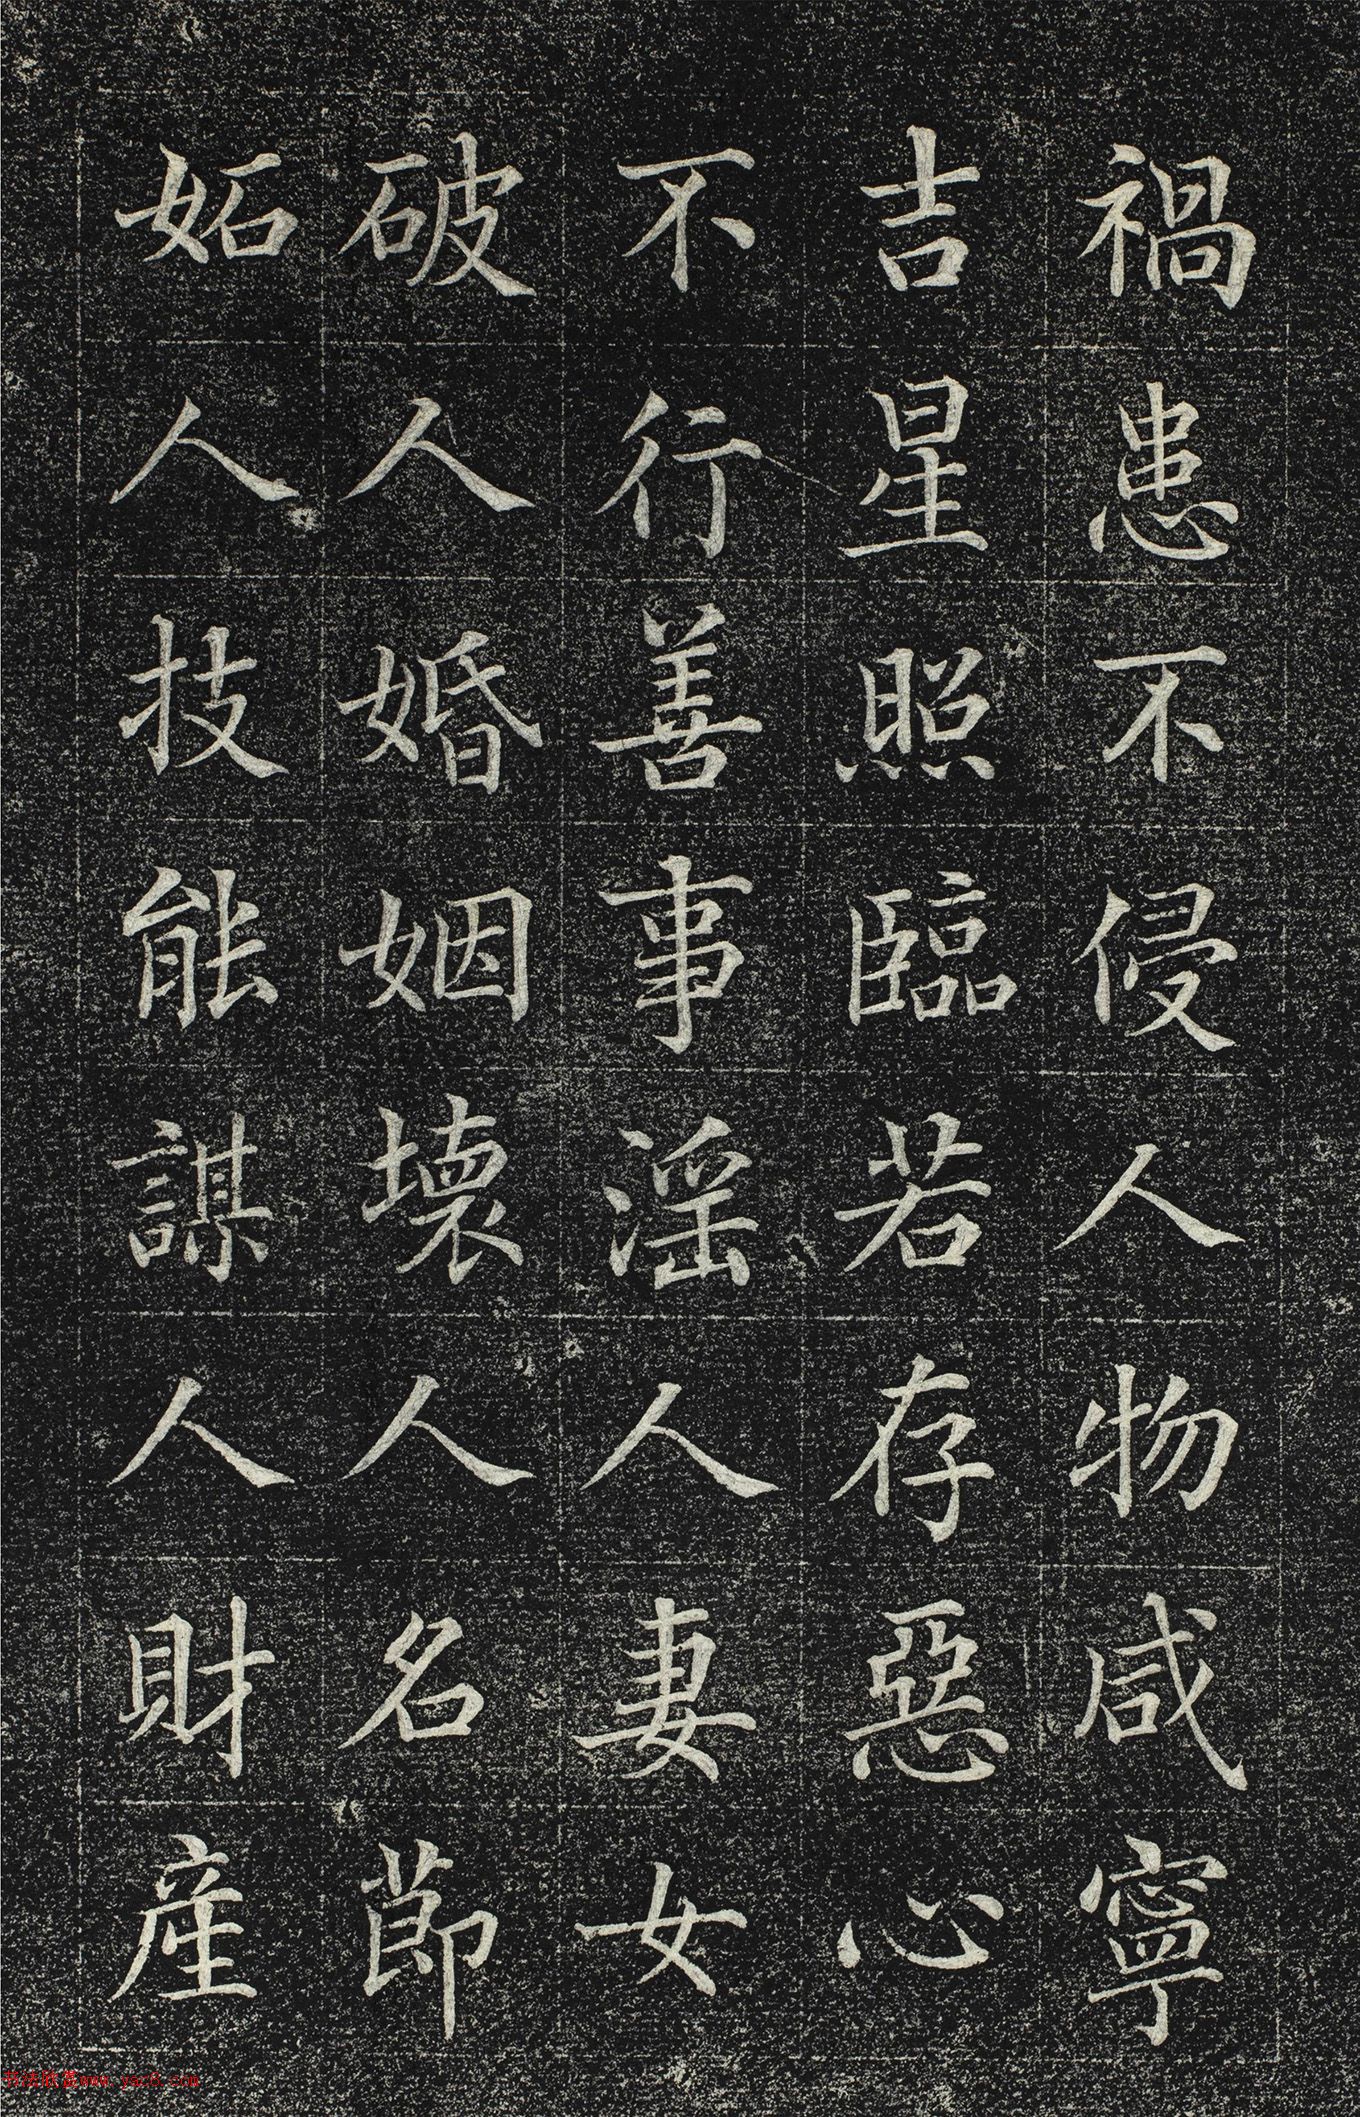 禍患不侵人物咸寧
吉星照臨若存惡心
不行善事淫人妻女
破人婚姻壞人名節
妬人技能謀人財產
书法欣赏www.yac8.com